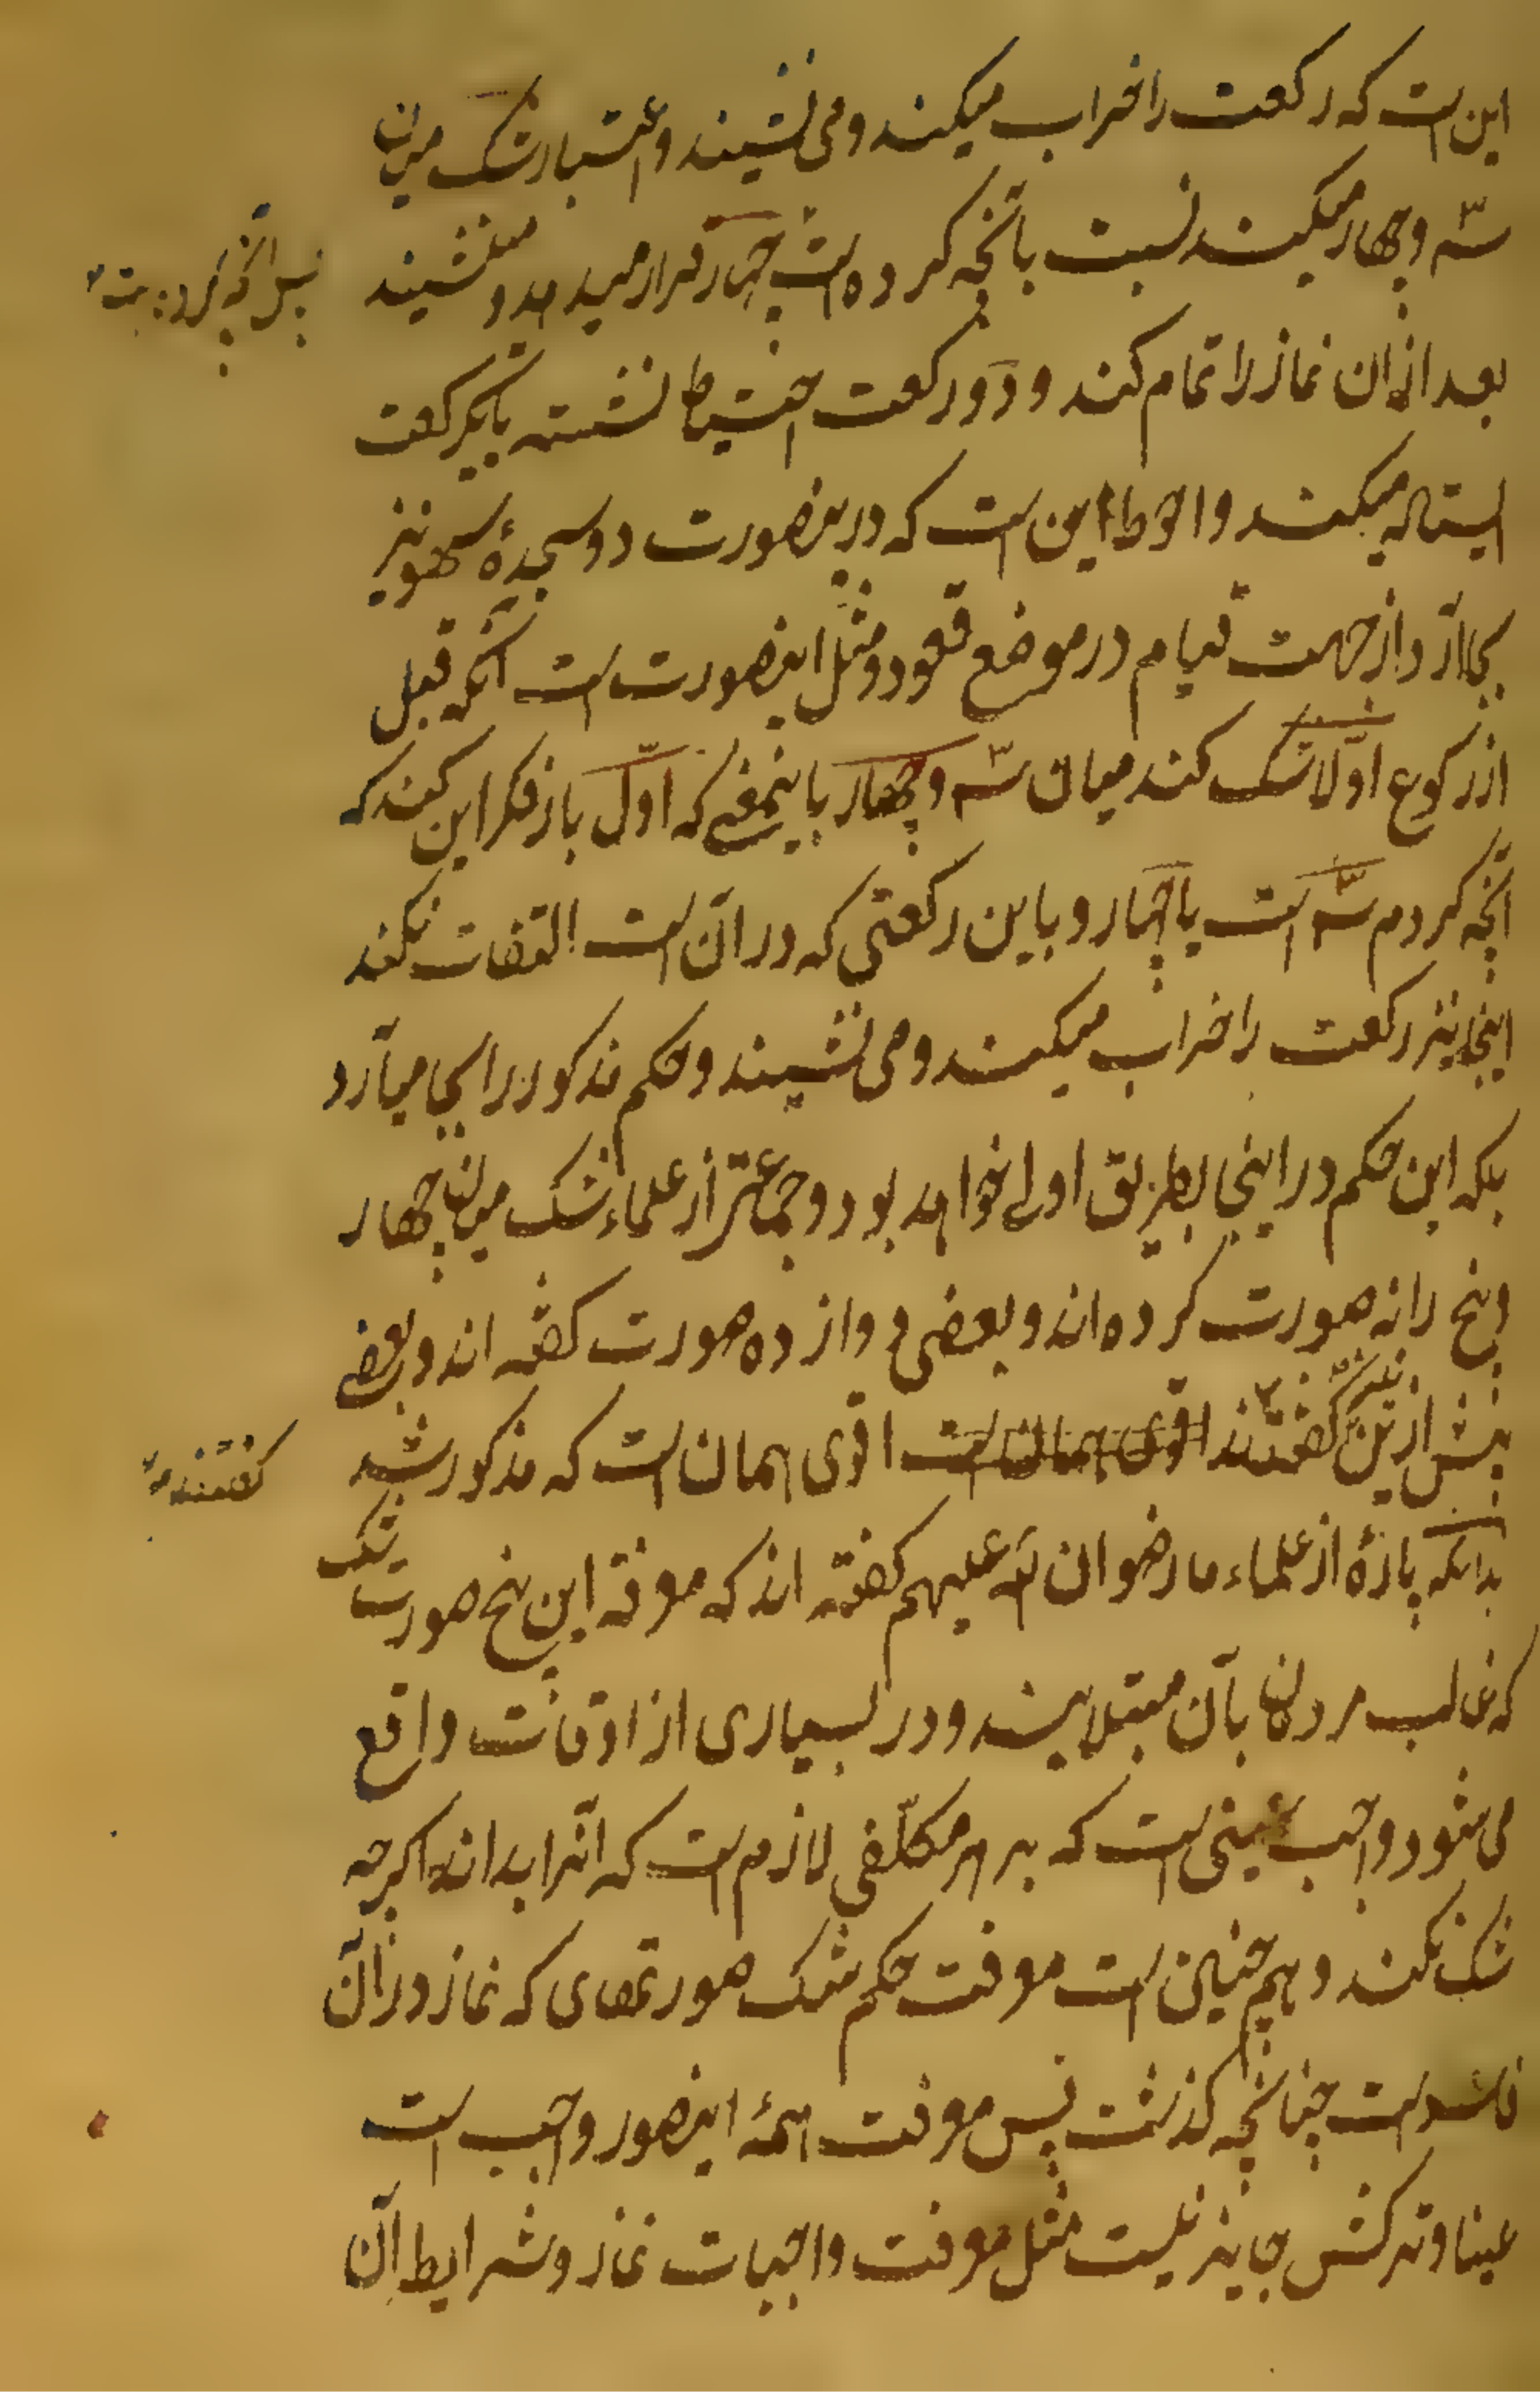 این است که رکعت را خراب میکند و می نشیند و اعتبار شک میان
سه و چهار میکند نسبت بآنچه کرده است چهار قرار میدهد و مینشیند
پس آنچه کرده است
بعد از آن نماز را تمام کند و دو رکعت احتیاط نشسته یا یکرکعت
ایستاده میکند و احوط این است که درینصورت دو سجدهٔ سهو نیز
بجا آرد از جهت قیام در موضع قعود و مثل اینصورت است آنکه قبل
از رکوع اولا شک کند میان سه و چهار باینمعنی که اول باز فکر این کند که
آنچه کردم سه است یا چهار و باین رکعتی که در آن است التفات نکند
اینجا نیز رکعت را خراب میکند و می نشیند و حکم مذکور را بجا میآرد
بلکه این حکم در اینجا بطریق اولی خواهد بود و جماعتی از علماء شک میان چهار
و پنج را نه صورت کرده اند و بعضی دوازده صورت گفته اند و بعضی
بیش ازین نیز گفته‌اند اقوی همان است اقوی همان است که مذکور شد
گفتند
بدانکه پارهٔ از علماء ما رضوان الله علیهم گفته اند که معرفة این پنج صورت شک
که غالب مردمان بآن مبتلایند و در بسیاری از اوقات واقع
می شود واجب عینی است که بر هر مکلّفی لازم است که آنرا بداند اگرچه
شک نکند و همچنین است معرفت حکم شک صورتهای که نماز در آن
فاسد است چنانچه گذشت پس معرفت همهٔ اینصور واجب است
عینا و ترکش جایز نیست مثل معرفت واجبات نماز و شرایط آن